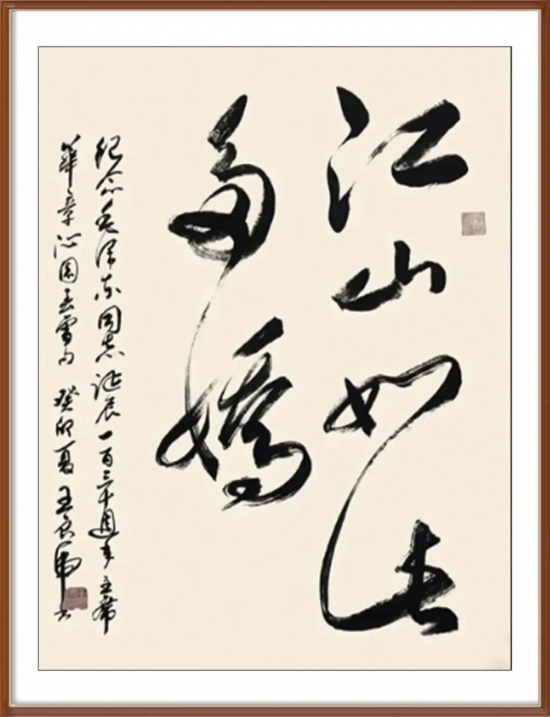 江山如此
多嬌
纪念毛泽东同志诞辰一百三十週年主席
華章沁園春雪句 癸卯夏 王良虎书